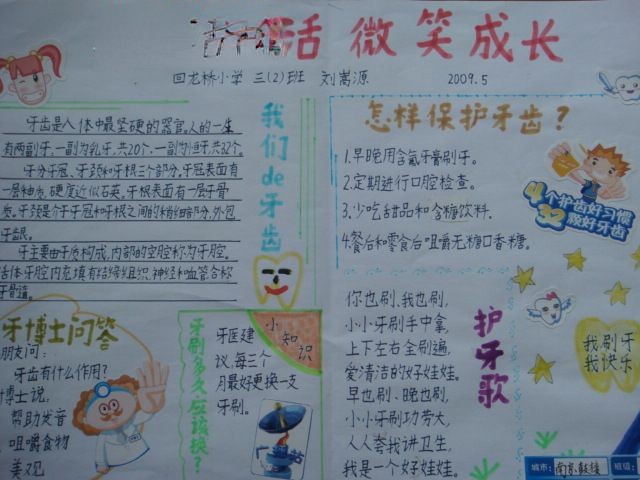 活 微笑成长
回龙桥小学 三(2)班 刘嵩源 2009.5
牙齿是人体中最坚硬的器官。人的一生
有两副牙,一副为乳牙,共20个,一副为恒牙,共32个。
牙分牙冠、牙颈和牙根三个部分,牙冠表面有
一层釉质,硬度近似石英。牙根表面有一层牙骨
质。牙颈是介于牙冠和牙根之间的稍细部分,外包
牙龈。
牙主要由牙质构成,内部的空腔称为牙腔。
活体牙腔内充填有结缔组织、神经和血管合称
牙骨遀。
我们de牙齿
怎样保护牙齿?
1.早晚用含氟牙膏刷牙。
2.定期进行口腔检查。
3.少吃甜品和含糖饮料。
4.餐后和零食后咀嚼无糖口香糖。
4个护齿好习惯
32颗好牙齿
牙博士问答
朋友问:
牙齿有什么作用?
博士说,
帮助发音
咀嚼食物
美观
牙刷多久应该换?
小知识
牙医建
议,每三个
月最好更换一支
牙刷。
你也刷、我也刷,
小小牙刷手中拿,
上下左右全刷遍,
爱清洁的好娃娃。
早也刷、晚也刷,
小小牙刷功劳大,
人人夸我讲卫生,
我是一个好娃娃。
护牙歌
我刷牙
我快乐
城市:南京鼓楼
班级: